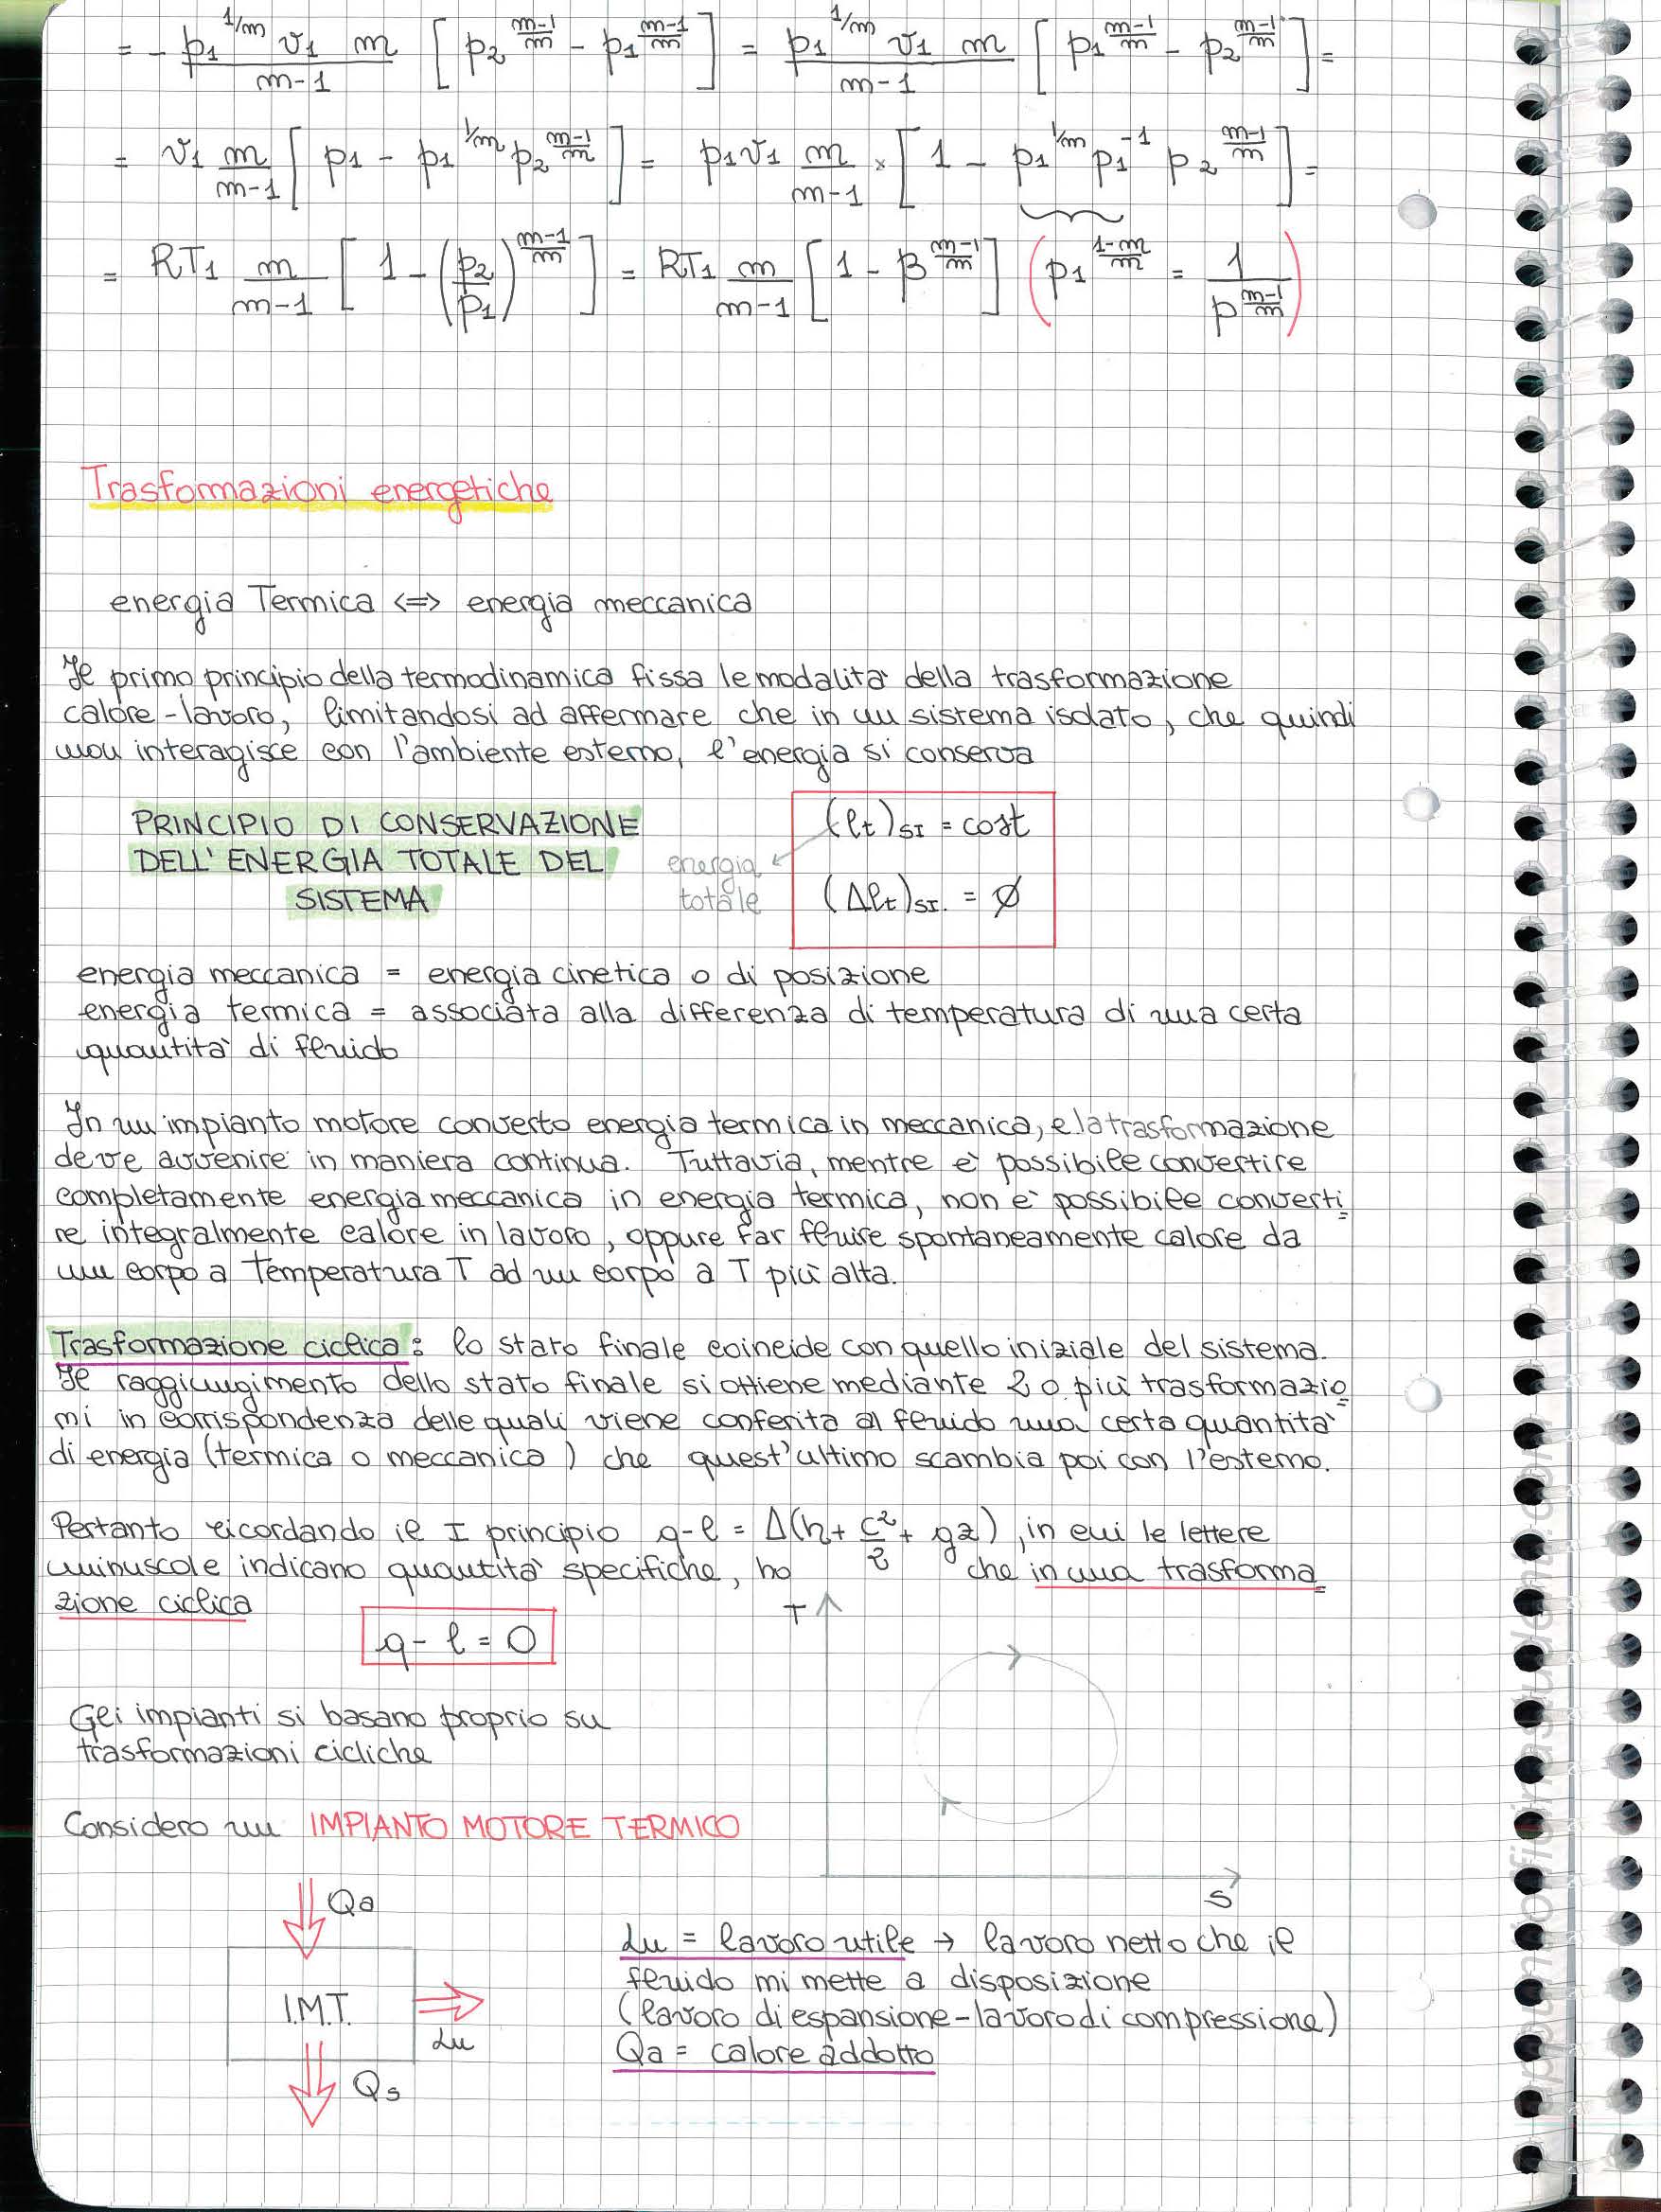 = - p1^(1/m) v1 m / (m-1) [ p2^((m-1)/m) - p1^((m-1)/m) ] = p1^(1/m) v1 m / (m-1) [ p1^((m-1)/m) - p2^((m-1)/m) ] =
= v1 m/(m-1) [ p1 - p1^(1/m) p2^((m-1)/m) ] = p1v1 m/(m-1) × [ 1 - p1^(1/m) p1^(-1) p2^((m-1)/m) ] =
= RT1 m/(m-1) [ 1 - (p2/p1)^((m-1)/m) ] = RT1 m/(m-1) [ 1 - β^((m-1)/m) ] ( p1^((1-m)/m) = 1/p^((m-1)/m) )
Trasformazioni energetiche
energia Termica <=> energia meccanica
Il primo principio della termodinamica fissa le modalità della trasformazione
calore-lavoro, limitandosi ad affermare che in un sistema isolato, che quindi
non interagisce con l'ambiente esterno, l'energia si conserva
PRINCIPIO DI CONSERVAZIONE
DELL'ENERGIA TOTALE DEL
SISTEMA
energia
totale
(et)SI = cost
(Δet)SI. = Ø
energia meccanica = energia cinetica o di posizione
energia termica = associata alla differenza di temperatura di una certa
quantità di fluido
In un impianto motore converto energia termica in meccanica, e la trasformazione
deve avvenire in maniera continua. Tuttavia, mentre è possibile convertire
completamente energia meccanica in energia termica, non è possibile converti
re integralmente calore in lavoro, oppure far fluire spontaneamente calore da
un corpo a temperatura T ad un corpo a T più alta.
Trasformazione ciclica: lo stato finale coincide con quello iniziale del sistema.
Il raggiungimento dello stato finale si ottiene mediante 2 o più trasformazio
ni in corrispondenza delle quali viene conferita al fluido una certa quantità
di energia (termica o meccanica) che quest'ultimo scambia poi con l'esterno.
Pertanto ricordando il I principio q-l = Δ(h + c²/2 + gz), in cui le lettere
minuscole indicano quantità specifiche, ho che in una trasforma
zione ciclica
q - l = 0
T
S
Gli impianti si basano proprio su
trasformazioni cicliche
Considero un IMPIANTO MOTORE TERMICO
Qa
I.M.T.
Lu
Qs
Lu = lavoro utile → lavoro netto che il
fluido mi mette a disposizione
(lavoro di espansione-lavoro di compressione)
Qa = calore addotto
appuntiofficinastudenti.com